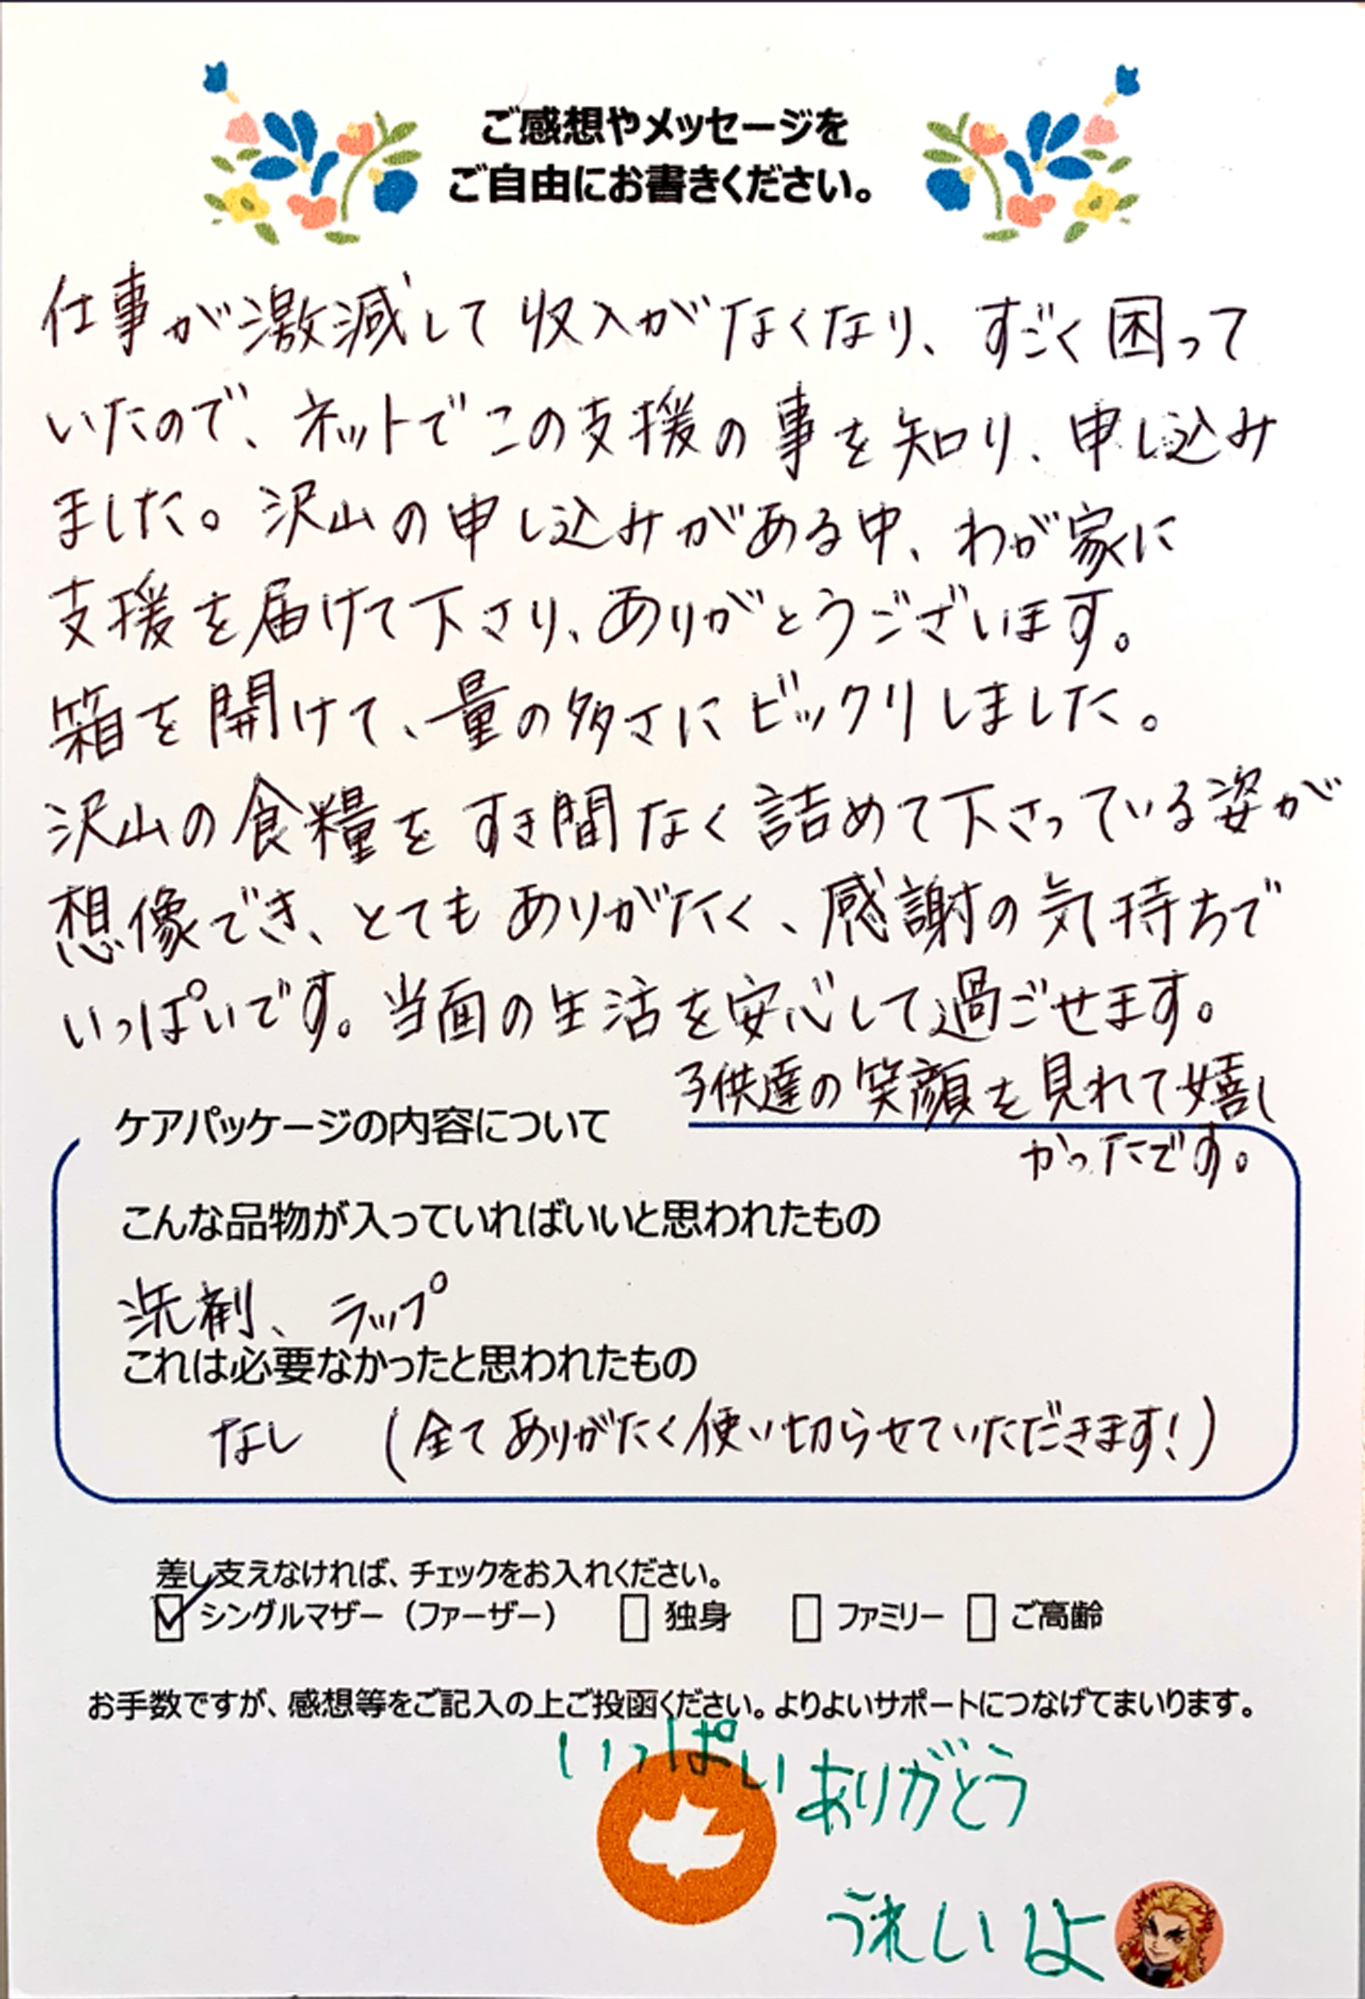 ご感想やメッセージを
ご自由にお書きください。
仕事が激減して収入がなくなり、すごく困って
いたので、ネットでこの支援の事を知り、申し込み
ました。沢山の申し込みがある中、わが家に
支援を届けて下さり、ありがとうございます。
箱を開けて、量の多さにビックリしました。
沢山の食糧をすき間なく詰めて下さっている姿が
想像でき、とてもありがたく、感謝の気持ちで
いっぱいです。当面の生活を安心して過ごせます。
子供達の笑顔を見れて嬉し
かったです。
ケアパッケージの内容について
こんな品物が入っていればいいと思われたもの
洗剤、ラップ
これは必要なかったと思われたもの
なし (全てありがたく使い切らせていただきます!)
差し支えなければ、チェックをお入れください。
シングルマザー（ファーザー） 独身 ファミリー ご高齢
お手数ですが、感想等をご記入の上ご投函ください。よりよいサポートにつなげてまいります。
いっぱいありがとう
うれしいよ